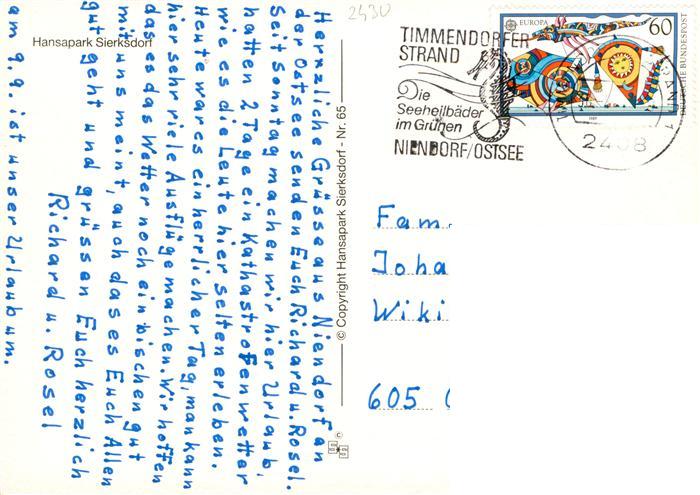 2430
Hansapark Sierksdorf
TIMMENDORFER
STRAND
Die
Seeheilbäder
im Grünen
NIENDORF/OSTSEE
EUROPA
60
DEUTSCHE BUNDESPOST
1989
STRAND 1
2408
Herzliche Grüsse aus Niendorf an
der Ostsee senden Euch Richard u. Rosel.
Seit Sonntag machen wir hier Urlaub,
hatten 2 Tage ein Kathastrofenwetter
wie es die Leute hier selten erleben.
Heute war es ein herrlicher Tag, man kann
hier sehr viele Ausflüge machen. Wir hoffen
das es das Wetter noch ein bischen gut
mit uns meint, auch das es Euch Allen
gut geht und grüssen Euch herzlich
Richard u. Rosel
am 9.9. ist unser Urlaub um.
© Copyright Hansapark Sierksdorf - Nr. 65
Fam.
Joha
Wiki
605